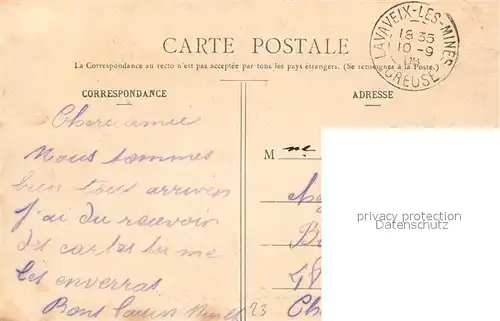 CARTE POSTALE
La Correspondance au recto n'est pas acceptée par tous les pays étrangers. (Se renseigner à la Poste.)
LAVAVEIX-LES-MINES
18 35
10-9
08
CREUSE
CORRESPONDANCE
ADRESSE
Chere amie
Nous sommes
bien tous arrivés
j'ai du recevoir
des cartes tu me
les enverras
Bons baisers
Mme
23
privacy protection
Datenschutz